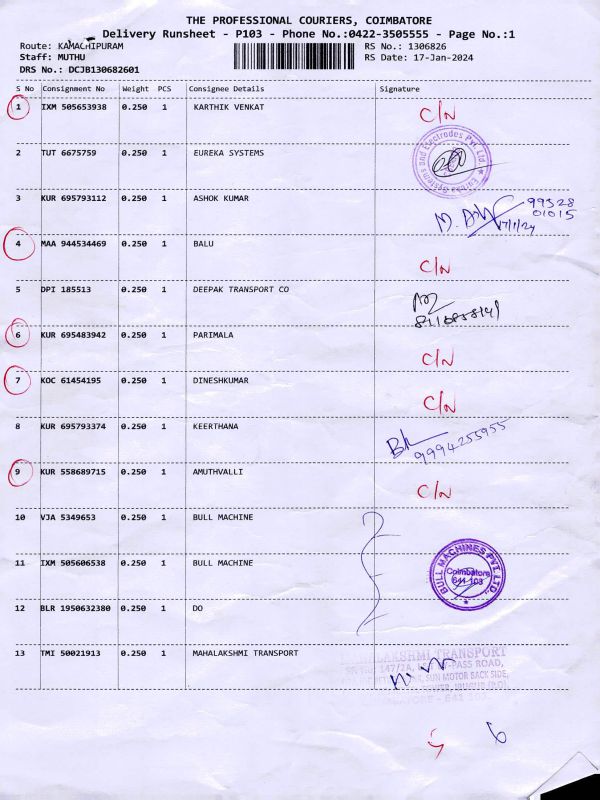 THE PROFESSIONAL COURIERS, COIMBATORE
Delivery Runsheet - P103 - Phone No.:0422-3505555 - Page No.:1
Route: KAMACHIPURAM
RS No.: 1306826
Staff: MUTHU
RS Date: 17-Jan-2024
DRS No.: DCJB130682601
S No Consignment No Weight PCS Consignee Details Signature
1 IXM 505653938 0.250 1 KARTHIK VENKAT C/N
2 TUT 6675759 0.250 1 EUREKA SYSTEMS
Systems and Electrodes Pvt Ltd
3 KUR 695793112 0.250 1 ASHOK KUMAR
99328
01015
17/1/24
4 MAA 944534469 0.250 1 BALU C/N
5 DPI 185513 0.250 1 DEEPAK TRANSPORT CO
6 KUR 695483942 0.250 1 PARIMALA C/N
7 KOC 61454195 0.250 1 DINESHKUMAR C/N
8 KUR 695793374 0.250 1 KEERTHANA
9994255955
9 KUR 558689715 0.250 1 AMUTHVALLI C/N
10 VJA 5349653 0.250 1 BULL MACHINE
11 IXM 505606538 0.250 1 BULL MACHINE
BULL MACHINES PVT LTD.,
Coimbatore
641 103
12 BLR 1950632380 0.250 1 DO
13 TMI 50021913 0.250 1 MAHALAKSHMI TRANSPORT
MAHALAKSHMI TRANSPORT
147/2A, PASS ROAD,
SUN MOTOR BACK SIDE,
641 103